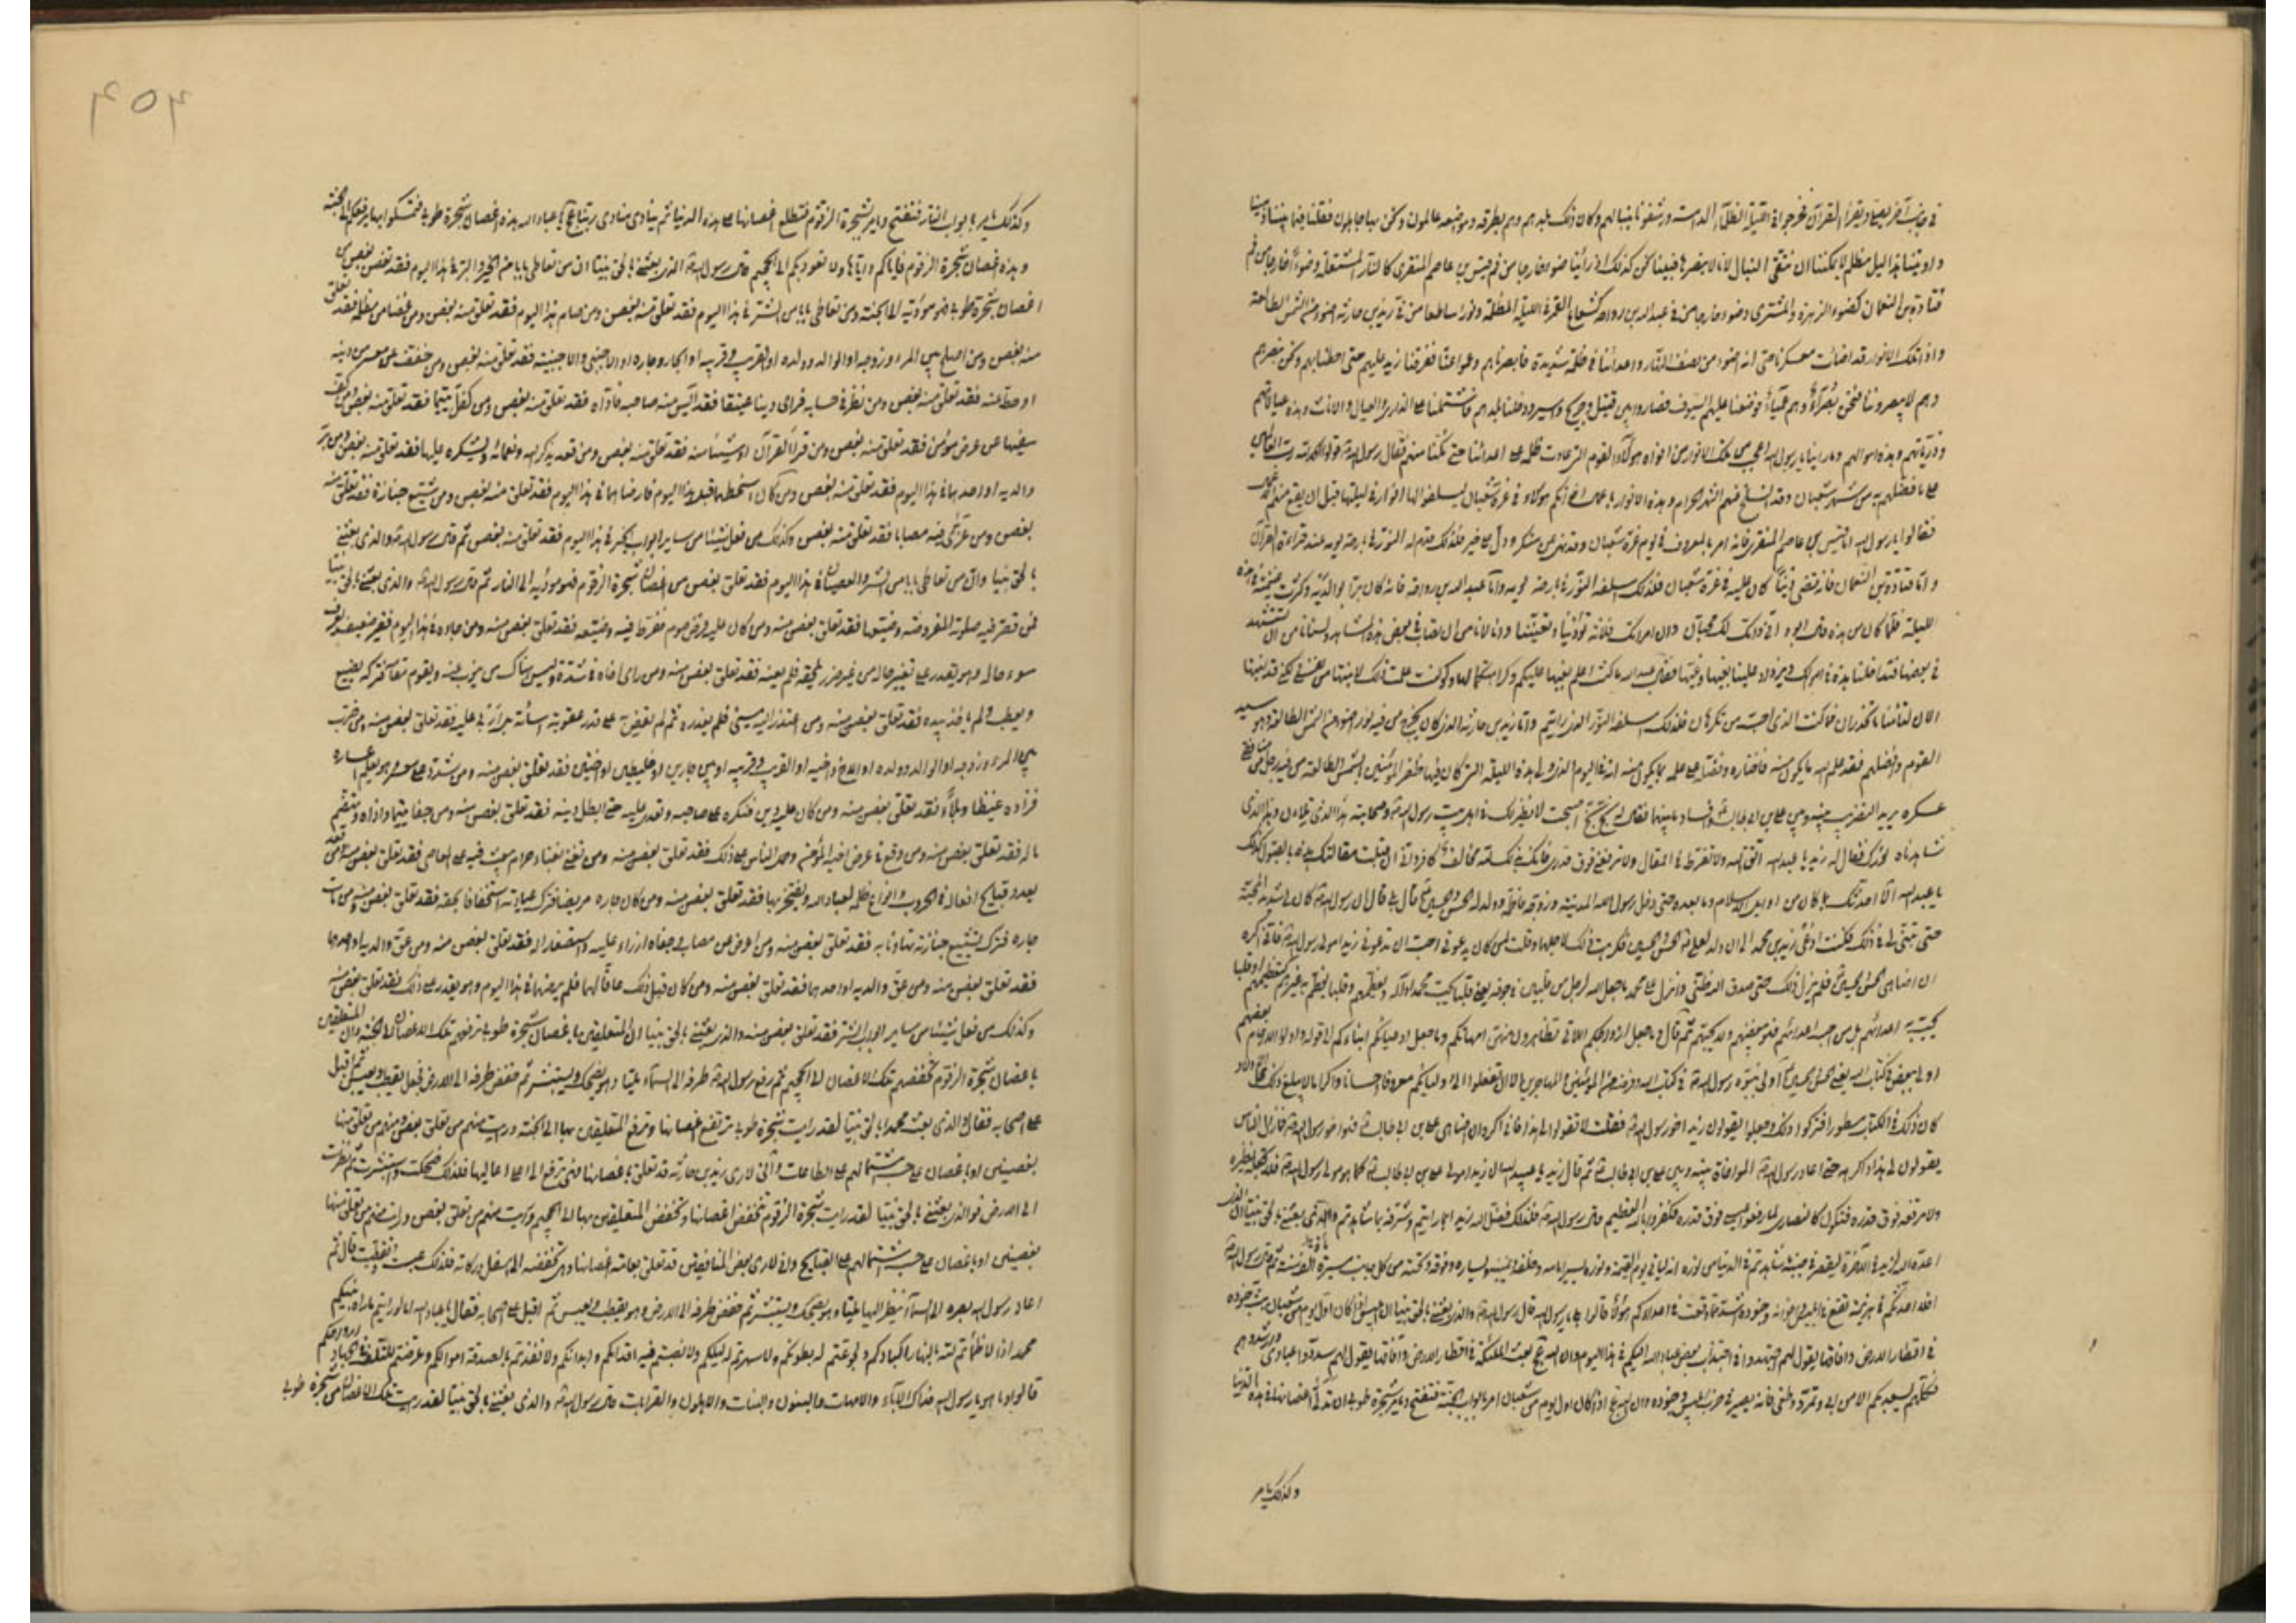 في جانب آخر يصلي ويقرأ القرآن فخرجوا في الليلة الظلماء الدامسة ورشقونا بنبالهم وكان ذلك بلدهم وهم بطرقه ومواضعه عالمون ونحن بها جاهلون فقلنا فيما بيننا دهينا
واوتينا هذا ليل مظلم لا يمكننا ان نتقي النبال لانا لا نبصرها فبينا نحن كذلك اذ رأينا ضوءا خارجا من فم قيس بن عاصم المنقري كالنار المشتعلة وضوءا خارجا من فم
قتادة بن النعمان كضوء الزهرة والمشتري وضوء خارجا من في عبد الله بن رواحة كشعاع القمر في الليلة المظلمة ونورا ساطعا من في زيد بن حارثة اضوء من الشمس الطالعة
واذا تلك الانوار قد اضاءت معسكرنا حتى انه اضوء من نصف النهار واعدائنا في ظلمة شديدة فابصرناهم وعموا عنا ففرقنا زيد عليهم حتى احطنا بهم ونحن نبصرهم
وهم لا يبصروننا فنحن بصراء وهم عميان فوضعنا عليهم السيوف فصاروا بين قتيل وجريح واسير ودخلنا بلدهم فاشتملنا على الذراري والعيال والاثاث وهذه عيالاتهم
وذراريهم وهذه اموالهم وما راينا يا رسول الله اعجب من تلك الانوار من افواه هؤلاء القوم التي عادت ظلمة على اعدائنا حتى مكنا منهم فقال رسول الله ص قولوا الحمد لله رب العالمين
على ما فضلكم به من شهر شعبان وقد انسلخ عنهم الشهر الحرام وهذه الانوار باعمال اخوانكم هؤلاء في غرة شعبان اسلفوا لها انوار في ليلتها قبل ان يقع منهم الاعمال
فقالوا يا رسول الله اما قيس بن عاصم المنقري فانه امر بالمعروف في يوم غرة شعبان وقد نهى عن منكر ودل على خير فلذلك قدم له النور في بارحة يومه عند قراءة القرآن
واما قتادة بن النعمان فانه قضى دينا كان عليه في غرة شعبان فلذلك اسلفه الله النور في بارحة يومه واما عبد الله بن رواحة فانه كان برا بوالديه وكثرت غنيمته في هذه
الليلة فلما كان من غده قال ابوه اني وامك لك محبان وان امرأتك فلانة تؤذينا وتعنينا وانا لا نأمن ان تصاب في بعض هذه المشاهد ولسنا نأمن ان تستشهد
في بعضها فتداخلنا هذه في اموالك ويزداد علينا بغيها وغيها فقال عبد الله ما كنت اعلم بغيها عليكم وكراهتكما لها ولو كنت علمت ذلك لابنتها من نفسي لكني قد ابنتها
الان لتأمنا ما تحذران فما كنت الذي احب من تكرهان فلذلك اسلفه الله النور الذي رايتم واما زيد بن حارثة الذي كان يخرج من فيه نور اضوء من الشمس الطالعة وهو سيد
القوم وافضلهم فقد علم الله ما يكون منه فاختاره وفضله على علمه بما يكون منه انه في اليوم الذي ولي هذه الليلة التي كان فيها ظفر المؤمنين بالشمس الطالعة من فيه رجل من منافقي
عسكره يريد التضريب بينه وبين علي بن ابي طالب وافساد ما بينهما فقال له بخ بخ اصبحت لا نظير لك في اهل بيت رسول الله وصحابته هذا الذي بلاؤك وهذا الذي
شاهدناه نورك فقال له زيد يا عبد الله اتق الله ولا تفرط في المقال ولا ترفعني فوق قدري فانك لله بذلك مخالف وبه كافر واني ان تلقيت مقالتك هذه بالقبول كذلك
يا عبد الله الا احدثك بما كان من اوايل الاسلام وما بعده حتى دخل رسول الله المدينة وزوجه فاطمة وولد له الحسن والحسين قال بلى قال ان رسول الله كان لي شديد المحبة
حتى تبناني لذلك فكنت ادعى زيد بن محمد الى ان ولد لعلي الحسن والحسين فكرهت ذلك لاجلهما وقلت لمن كان يدعوني احب ان تدعوني زيدا مولى رسول الله فاني اكره
ان اضاهي الحسن والحسين فلم يزل ذلك حتى صدق الله ظني وانزل على محمد ما جعل الله لرجل من قلبين في جوفه يعني قلبا يحب محمدا وآله ويعظمهم وقلبا يعظم به غيرهم كتعظيمهم او قلبا
يحب به اعدائهم بل من احب اعدائهم فهو يبغضهم ولا يحبهم ثم قال وما جعل ازواجكم اللائي تظاهرون منهن امهاتكم وما جعل ادعيائكم ابناءكم الى قوله واولوا الارحام بعضهم
اولى ببعض في كتاب الله يعني الحسن والحسين اولى ببنوة رسول الله في كتاب الله وفرضه من المؤمنين والمهاجرين الا ان تفعلوا الى اوليائكم معروفا احسانا واكراما لا يبلغ ذلك محل الاولاد
كان ذلك في الكتاب مسطورا فتركوا ذلك وجعلوا يقولون زيد اخو رسول الله فقلت لا تقولوا لي هذا فاني اكره ان اضاهي علي بن ابي طالب هو اخو رسول الله فما زال الناس
يقولون لي هذا واكرهه حتى اعاد رسول الله المؤاخاة بينه وبين علي بن ابي طالب ثم قال زيد يا عبد الله ان زيدا مولى علي بن ابي طالب كما هو مولى رسول الله فلا تجعله نظيره
ولا ترفعه فوق قدره فتكون كالنصارى لما رفعوا عيسى فوق قدره فكفروا بالله العظيم قال رسول الله فلذلك فضل الله زيدا بما رايتم وشرفه بما شاهدتم والذي بعثني بالحق نبيا ان الذي
اعده الله لزيد في الآخرة ليقصر في جنبه ما شاهدتم في الدنيا من نوره انه ليأتي يوم القيمة ونوره يسير امامه وخلفه ويمينه ويساره وفوقه وتحته من كل جانب مسيرة الف سنة ثم قال رسول الله
افلا احدثكم بهزيمة تقع في ابليس واعوانه وجنوده اشد مما وقعت في اعدائكم هؤلاء قالوا بلى يا رسول الله قال رسول الله والذي بعثني بالحق نبيا ان ابليس اذا كان اول يوم من شعبان بث جنوده
في اقطار الارض وآفاقها يقول لهم اجتهدوا في اجتذاب بعض عباد الله اليكم في هذا اليوم وان الله عج يبعث الملئكة في اقطار الارض وآفاقها يقول لهم سددوا عبادي وارشدوهم
فكلهم يسعد بكم الا من ابى وتمرد وطغى فانه يصير في حزب ابليس وجنوده وان الله عج اذا كان اول يوم من شعبان امر بابواب الجنة فتفتح ويأمر شجرة طوبى ان تدلي اغصانها في هذه الدنيا
وكذلك يامر
٤٥٤
وكذلك يامر بابواب النار فتفتح ويامر شجرة الزقوم فتطلع اغصانها على هذه الدنيا ثم ينادي منادي ربنا عج يا عباد الله هذه اغصان شجرة طوبى فتمسكوا بها يرفعكم الى الجنة
وهذه اغصان شجرة الزقوم فاياكم واياها ولا تعود بكم الى الجحيم قال رسول الله الذي بعثني بالحق نبيا ان من تعاطى بابا من الخير والبر في هذا اليوم فقد تعلق بغصن من
اغصان شجرة طوبى فهو مؤديه الى الجنة ومن تعاطى بابا من الشر في هذا اليوم فقد تعلق منه بغصن ومن صام هذا اليوم فقد تعلق منه بغصن ومن عفا من مظلمة فقد تعلق
منه بغصن ومن اصلح بين المرء وزوجه او الوالد وولده او القريب وقريبه او الجار وجاره او الاجنبي والاجنبية فقد تعلق منه بغصن ومن خفف عن معسر من دينه
او حط عنه فقد تعلق منه بغصن ومن نظر في حسابه فراى دينا عتيقا فقد آيس منه صاحبه فاداه فقد تعلق منه بغصن ومن كفل يتيما فقد تعلق منه بغصن ومن كف
سفيها عن عرض مؤمن فقد تعلق منه بغصن ومن قرأ القرآن او شيئا منه فقد تعلق منه بغصن ومن قعد يذكر الله ونعمائه ويشكره عليها فقد تعلق منه بغصن ومن بر
والديه او احدهما في هذا اليوم فقد تعلق منه بغصن ومن كان اسخطهما قبل هذا اليوم فارضاهما في هذا اليوم فقد تعلق منه بغصن ومن شيع جنازة فقد تعلق منه
بغصن ومن عزى فيه مصابا فقد تعلق منه بغصن وكذلك من فعل شيئا من ساير ابواب الخير في هذا اليوم فقد تعلق منه بغصن ثم قال رسول الله والذي بعثني
بالحق نبيا وان من تعاطى بابا من الشر والعصيان في هذا اليوم فقد تعلق بغصن من اغصان شجرة الزقوم فهو مؤديه الى النار ثم قال رسول الله والذي بعثني بالحق نبيا
فمن قصر فيه صلوته المفروضة وضيعها فقد تعلق بغصن منه ومن كان عليه فرض صوم ففرط فيه وضيعه فقد تعلق بغصن منه ومن جاءه في هذا اليوم فقير ضعيف يعرف
سوء حاله وهو يقدر على تغيير حاله من غير ضرر يلحقه فلم يعنه فقد تعلق بغصن منه ومن راى اخاه في شدة وليس هناك من ينوب عنه ويقوم مقامه فتركه يضيع
ويعطب ولم يأخذ بيده فقد تعلق بغصن منه ومن اعتذر اليه مسيئ فلم يعذره ثم لم يقتصر به على قدر عقوبة اسائته بل اربى عليه فقد تعلق بغصن منه ومن ضرب
بين المرء وزوجه او الوالد وولده او الاخ واخيه او القريب وقريبه او بين جارين او خليطين او اختين فقد تعلق بغصن منه ومن شدد على معسر وهو يعلم اعساره
فزاده غيظا وبلاء فقد تعلق بغصن منه ومن كان عليه دين فنكره على صاحبه وتعدى عليه حتى ابطل دينه فقد تعلق بغصن منه ومن جفا يتيما واذاه وتهضم
ماله فقد تعلق بغصن منه ومن وقع في عرض اخيه المؤمن وحمل الناس على ذلك فقد تعلق بغصن منه ومن تغنى بغناء حرام يبعث فيه على المعاصي فقد تعلق بغصن منه ومن قعد
يعدد قبايح افعاله في الحروب وانواع ظلمه لعباد الله ويفتخر بها فقد تعلق بغصن منه ومن كان جاره مريضا فترك عيادته استخفافا بحقه فقد تعلق بغصن منه ومن مات
جاره فترك تشييع جنازته تهاونا به فقد تعلق بغصن منه ومن اعرض عن مصاب وجفاه ازراء عليه واستصغارا له فقد تعلق بغصن منه ومن عق والديه او احدهما
فقد تعلق بغصن منه ومن عق والديه او احدهما فقد تعلق بغصن منه ومن كان قبل ذلك عاقا لهما فلم يرضهما في هذا اليوم وهو يقدر على ذلك فقد تعلق بغصن منه
وكذلك من فعل شيئا من ساير ابواب الشر فقد تعلق بغصن منه والذي بعثني بالحق نبيا ان المتعلقين باغصان شجرة طوبى ترفعهم تلك الاغصان الى الجنة وان المتعلقين
باغصان شجرة الزقوم تخفضهم تلك الاغصان الى الجحيم ثم رفع رسول الله طرفه الى السماء مليا وهو يضحك ويستبشر ثم خفض طرفه الى الارض فجعل يقطب ويعبس ثم اقبل
على اصحابه فقال والذي بعث محمدا بالحق نبيا لقد رايت شجرة طوبى ترتفع اغصانها وترفع المتعلقين بها الى الجنة ورايت منهم من تعلق بغصن ومنهم من تعلق منها
بغصنين او باغصان على حسب اشتمالهم على الطاعات واني لارى زيد بن حارثة قد تعلق بعامة اغصانها فهي ترفعه الى اعلى اعاليها فلذلك ضحكت واستبشرت ثم نظرت
الى الارض فوالذي بعثني بالحق نبيا لقد رايت شجرة الزقوم تنخفض اغصانها وتخفض المتعلقين بها الى الجحيم ورايت منهم من تعلق بغصن ورايت منهم من تعلق منها
بغصنين او باغصان على حسب اشتمالهم على القبايح واني لارى بعض المنافقين قد تعلق بعامة اغصانها وهي تخفضه الى اسفل دركاته فلذلك عبست وقطبت قال ثم
اعاد رسول الله بصره الى السماء ينظر اليها مليا وهو يضحك ويستبشر ثم خفض طرفه الى الارض وهو يقطب ويعبس ثم اقبل على اصحابه فقال يا عباد الله اما لو رايتم ما راه نبيكم
محمد اذا لاظمأتم لله بالنهار اكبادكم ولجوعتم له بطونكم ولاسهرتم له ليلكم ولانصبتم فيه اقدامكم وابدانكم ولانفدتم بالصدقة اموالكم وعرضتم للتلف في الجهاد ارواحكم
قالوا وما هو يا رسول الله فداك الآباء والامهات والبنون والبنات والاهلون والقرابات قال رسول الله والذي بعثني بالحق نبيا لقد رايت تلك الاغصان من شجرة طوبى